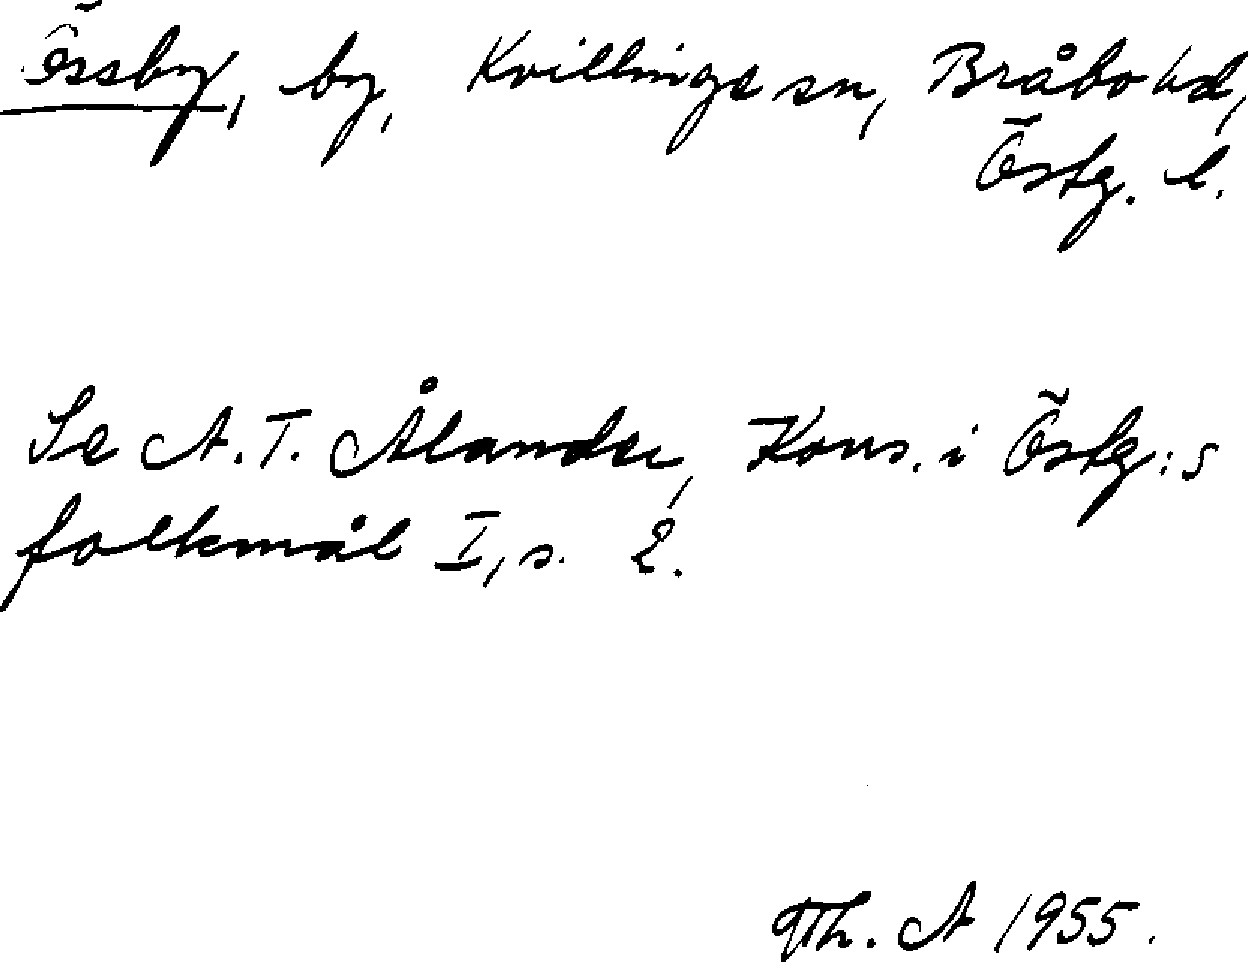 Össby, by, Kvillinge sn, Bråbo hd,
Östg. l.
Se A. T. Ålander, Kons. i Östg:s
folkmål I, s. 2.
Th. A 1955.